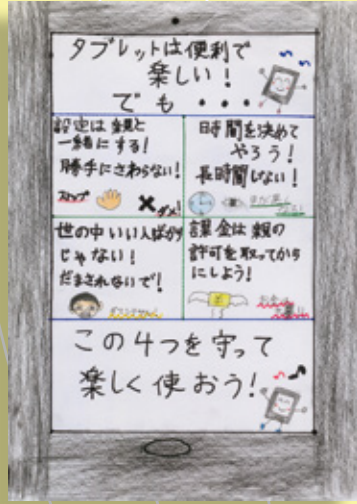 タブレットは便利で
楽しい!
でも・・・
設定は親と
一緒にする!
勝手にさわらない!
ストップ
ダメ!
時間を決めて
やろう!
長時間しない!
世の中いい人ばかり
じゃない!
だまされないで!
課金は親の
許可を取ってから
にしよう!
お金は
この4つを守って
楽しく使おう!